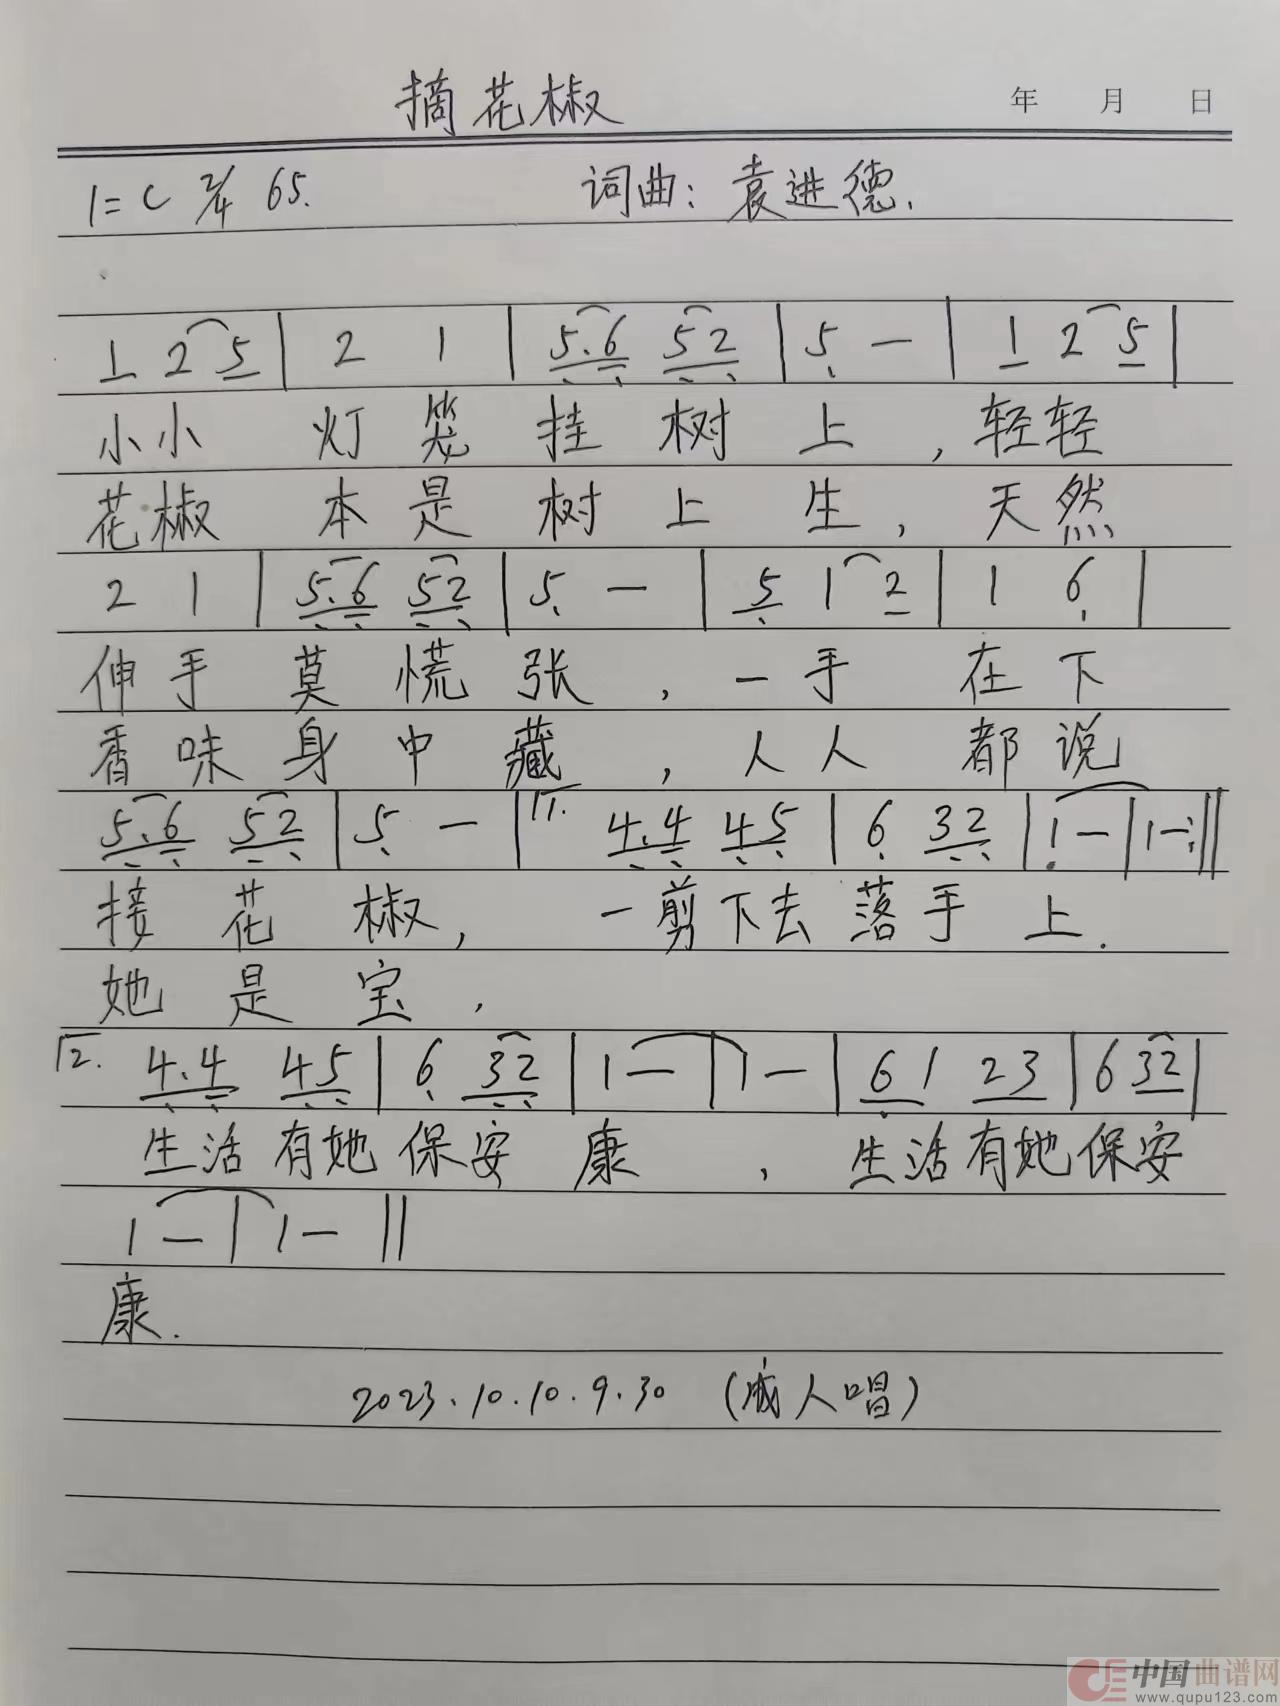 摘花椒
年 月 日
1=C 2/4 65. 词曲：袁进德.
1 2 5 | 2 1 | 5.6 5 2 | 5 — | 1 2 5 |
小小 灯笼 挂 树 上 ，轻轻
花椒 本是 树 上 生 ，天然
2 1 | 5.6 5 2 | 5 — | 5 1 2 | 1 6 |
伸手 莫 慌 张 ，一手 在下
香味 身 中 藏 ，人人 都说
5.6 5 2 | 5 — | 1. 4.4 4 5 | 6 3 2 | 1 — | 1 — :||
接 花 椒 ，一剪下去 落手 上.
她 是 宝 ，
2. 4.4 4 5 | 6 3 2 | 1 — | 1 — | 6 1 2 3 | 6 3 2 |
生活有她保安 康 ，生活有她保安
1 — | 1 — ||
康.
2023.10.10.9.30 (成人唱)
中国曲谱网
www.qupu123.com